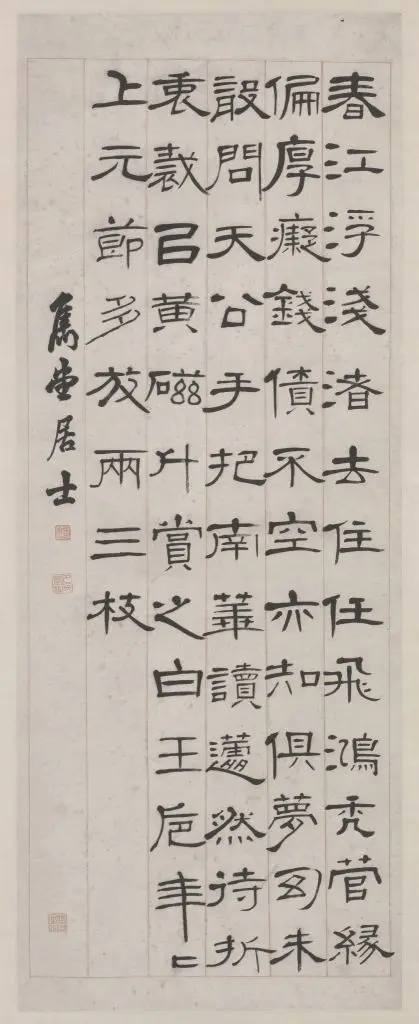 春江浮淺渚去住任飛鴻禿管緣
偏厚癡錢債不空亦知俱夢幻未
敢問天公手把南華讀蘧然待折
衷裁㠯黃磁升賞之白玉卮年〻
上元節多放兩三枝
堂居士